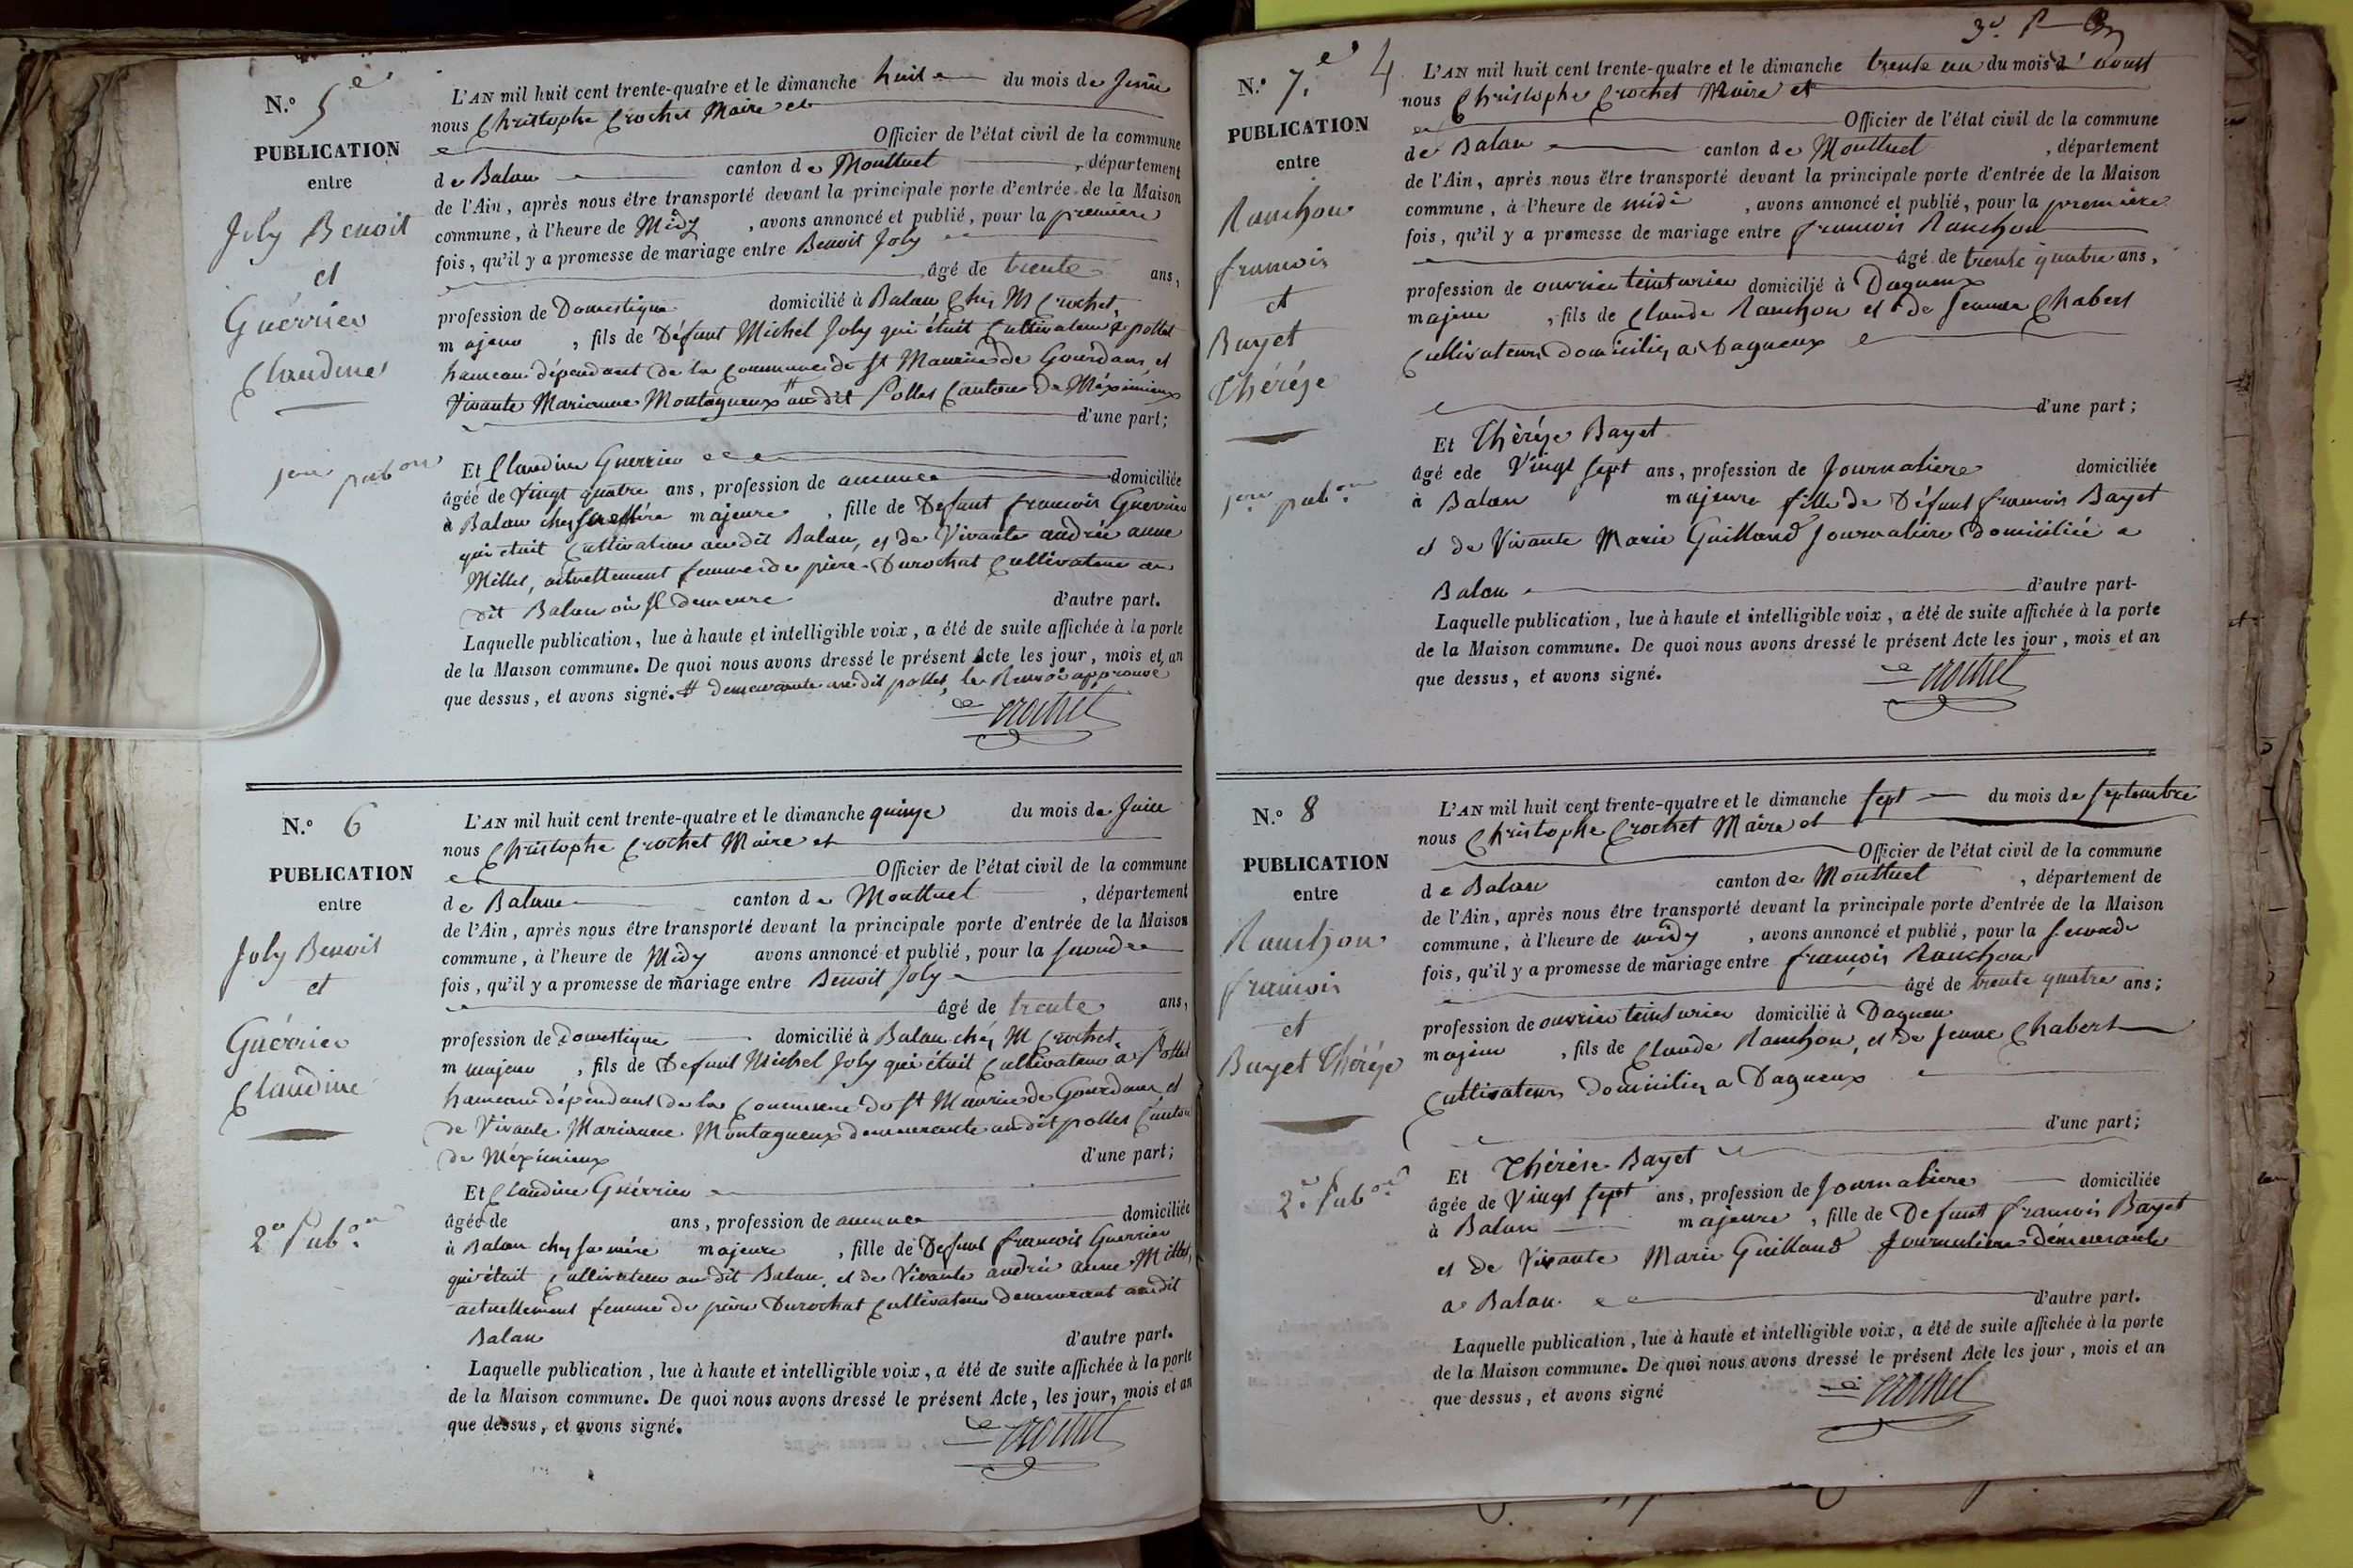 N.° 5e
PUBLICATION
entre
Joly Benoit
et
Guérrier
Claudine
1ere pubon
L'AN mil huit cent trente-quatre et le dimanche huit du mois de Juin
nous Christophe Crochet Maire et
Officier de l'état civil de la commune
de Balan canton de Montluel, département
de l'Ain, après nous être transporté devant la principale porte d'entrée de la Maison
commune, à l'heure de Midy, avons annoncé et publié, pour la première
fois, qu'il y a promesse de mariage entre Benoit Joly
âgé de trente ans,
profession de Domestique domicilié à Balan Chez M Crochet,
majeur, fils de Défunt Michel Joly qui était Cultivateur a pollet
hameau dépendant de la Commune de St Maurice de Gourdans, et
Vivante Marianne Montagneux # au dit Pollet Canton de Méximieux
d'une part;
Et Claudine Guerrier
âgée de Vingt quatre ans, profession de aucune domiciliée
à Balan chez sa Mère majeure, fille de Defunt francois Guerrier
qui etait Cultivateur au dit Balan, et de Vivante andrée anne
Millet, actuellement femme de pierre Durochat Cultivateur au
dit Balan où Il demeure d'autre part.
Laquelle publication, lue à haute et intelligible voix, a été de suite affichée à la porte
de la Maison commune. De quoi nous avons dressé le présent Acte les jour, mois et an
que dessus, et avons signé. # demeurante au dit pollet, le Renvoi approuvé
Crochet
N.° 6
PUBLICATION
entre
Joly Benoit
et
Guérrier
Claudine
2e Pubon
L'AN mil huit cent trente-quatre et le dimanche quinze du mois de Juin
nous Christophe Crochet Maire et
Officier de l'état civil de la commune
de Balan canton de Montluel, département
de l'Ain, après nous être transporté devant la principale porte d'entrée de la Maison
commune, à l'heure de Midy avons annoncé et publié, pour la seconde
fois, qu'il y a promesse de mariage entre Benoit Joly
âgé de trente ans,
profession de Domestique domicilié à Balan chez M Crochet,
m majeur, fils de Defunt Michel Joly qui était Cultivateur a Pollet
hameau dépendant de la Commune de St Maurice de Gourdans, et
de Vivante Marianne Montagneux demeurante au dit pollet Canton
de Méximieux d'une part;
Et Claudine Guérrier
âgée de ans, profession de aucune domiciliée
à Balan chez sa mère majeure, fille de Defunt francois Guerrier
qui était Cultivateur au dit Balan, et de Vivante andrée anne Millet,
actuellement femme de pierre Durochat Cultivateur demeurant au dit
Balan d'autre part.
Laquelle publication, lue à haute et intelligible voix, a été de suite affichée à la porte
de la Maison commune. De quoi nous avons dressé le présent Acte, les jour, mois et an
que dessus, et avons signé.
Crochet
N.° 7.e 4
PUBLICATION
entre
Ranchon
francois
et
Bayet
Thérése
1ere pubon
L'AN mil huit cent trente-quatre et le dimanche trente un du mois d'aoust
nous Christophe Crochet Maire et
Officier de l'état civil de la commune
de Balan canton de Montluel, département
de l'Ain, après nous être transporté devant la principale porte d'entrée de la Maison
commune, à l'heure de midi, avons annoncé et publié, pour la première
fois, qu'il y a promesse de mariage entre francois Ranchon
âgé de trente quatre ans,
profession de ouvrier teinturier domicilié à Dagneux
majeur, fils de Claude Ranchon et de Jeanne Chabert
Cultivateurs domiciliez a Dagneux
d'une part;
Et Thérése Bayet
âgé ede Vingt sept ans, profession de Journaliere domiciliée
à Balan majeure fille de Défunt francois Bayet
et de Vivante Marie Guilland Journaliere domiciliée a
Balan d'autre part-
Laquelle publication, lue à haute et intelligible voix, a été de suite affichée à la porte
de la Maison commune. De quoi nous avons dressé le présent Acte les jour, mois et an
que dessus, et avons signé.
Crochet
N.° 8
PUBLICATION
entre
Ranchon
francois
et
Bayet Thérése
2e Pubon
L'AN mil huit cent trente-quatre et le dimanche sept du mois de septembre
nous Christophe Crochet Maire et
Officier de l'état civil de la commune
de Balan canton de Montluel, département de
de l'Ain, après nous être transporté devant la principale porte d'entrée de la Maison
commune, à l'heure de midy, avons annoncé et publié, pour la seconde
fois, qu'il y a promesse de mariage entre françois Ranchon
âgé de trente quatre ans;
profession de ouvrier teinturier domicilié à Dagneux
majeur, fils de Claude Ranchon, et de Jeanne Chabert
Cultivateurs domiciliez a Dagneux
d'une part;
Et Thérèse Bayet
âgée de Vingt sept ans, profession de Journaliere domiciliée
à Balan majeure, fille de Defunt francois Bayet
et de Vivante Marie Guilland Journaliere demeurante
a Balan d'autre part.
Laquelle publication, lue à haute et intelligible voix, a été de suite affichée à la porte
de la Maison commune. De quoi nous avons dressé le présent Acte les jour, mois et an
que dessus, et avons signé
Crochet